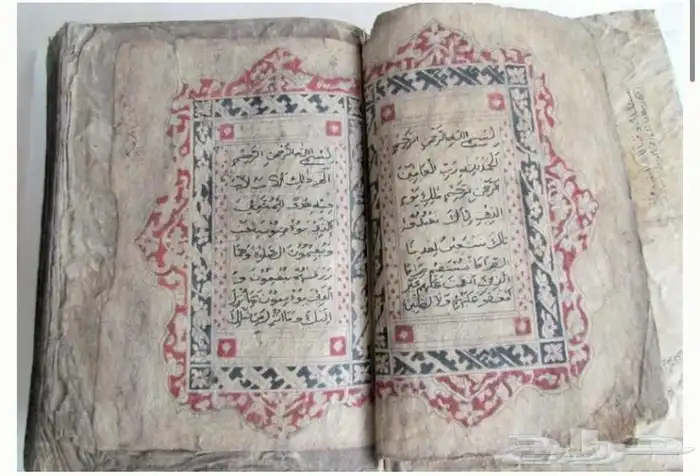 بسم الله الرحمن الرحيم
الحمد لله رب العالمين
الرحمن الرحيم ملك يوم
الدين اياك نعبد و ا
ياك نستعين اهدنا
الصراط المستقيم صراط
الذين انعمت عليهم غير
المغضوب عليهم ولا الضالين
بسم الله الرحمن الرحيم
الم ذلك الكتاب لا ريب
فيه هدى للمتقين
الذين يؤمنون بالغيب
ويقيمون الصلوة ومما
رزقنهم ينفقون و
الذين يؤمنون بما انزل
اليك وما انزل من قبلك
حراج